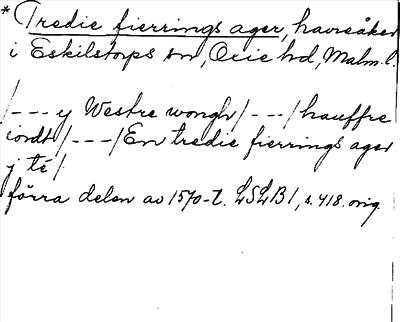 * Tredie fierrings ager, havreåker
i Eskilstorps sn, Oxie hd, Malm. l.
/--- y Westre wongh/---/hauffre
iordt/---/En tredie fierrings ager
j té/.
förra delen av 1570-t. LSLB 1, s. 418. orig.